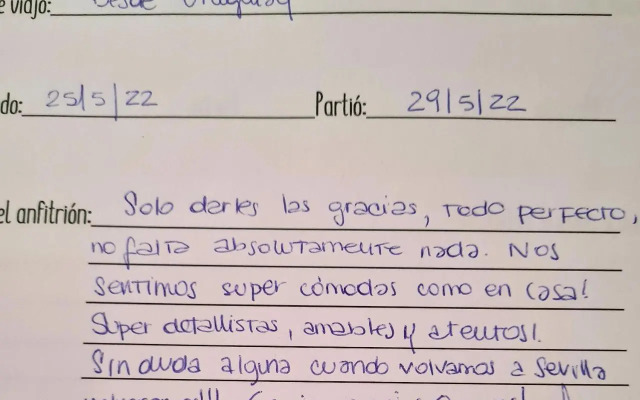 e viajó: Desde Uruguay
do: 25/5/22 Partió: 29/5/22
el anfitrión: Solo darles las gracias, todo perfecto,
no falta absolutamente nada. Nos
sentimos super cómodas como en casa!
Super detallistas, amables y atentos!.
Sin duda alguna cuando volvamos a Sevilla